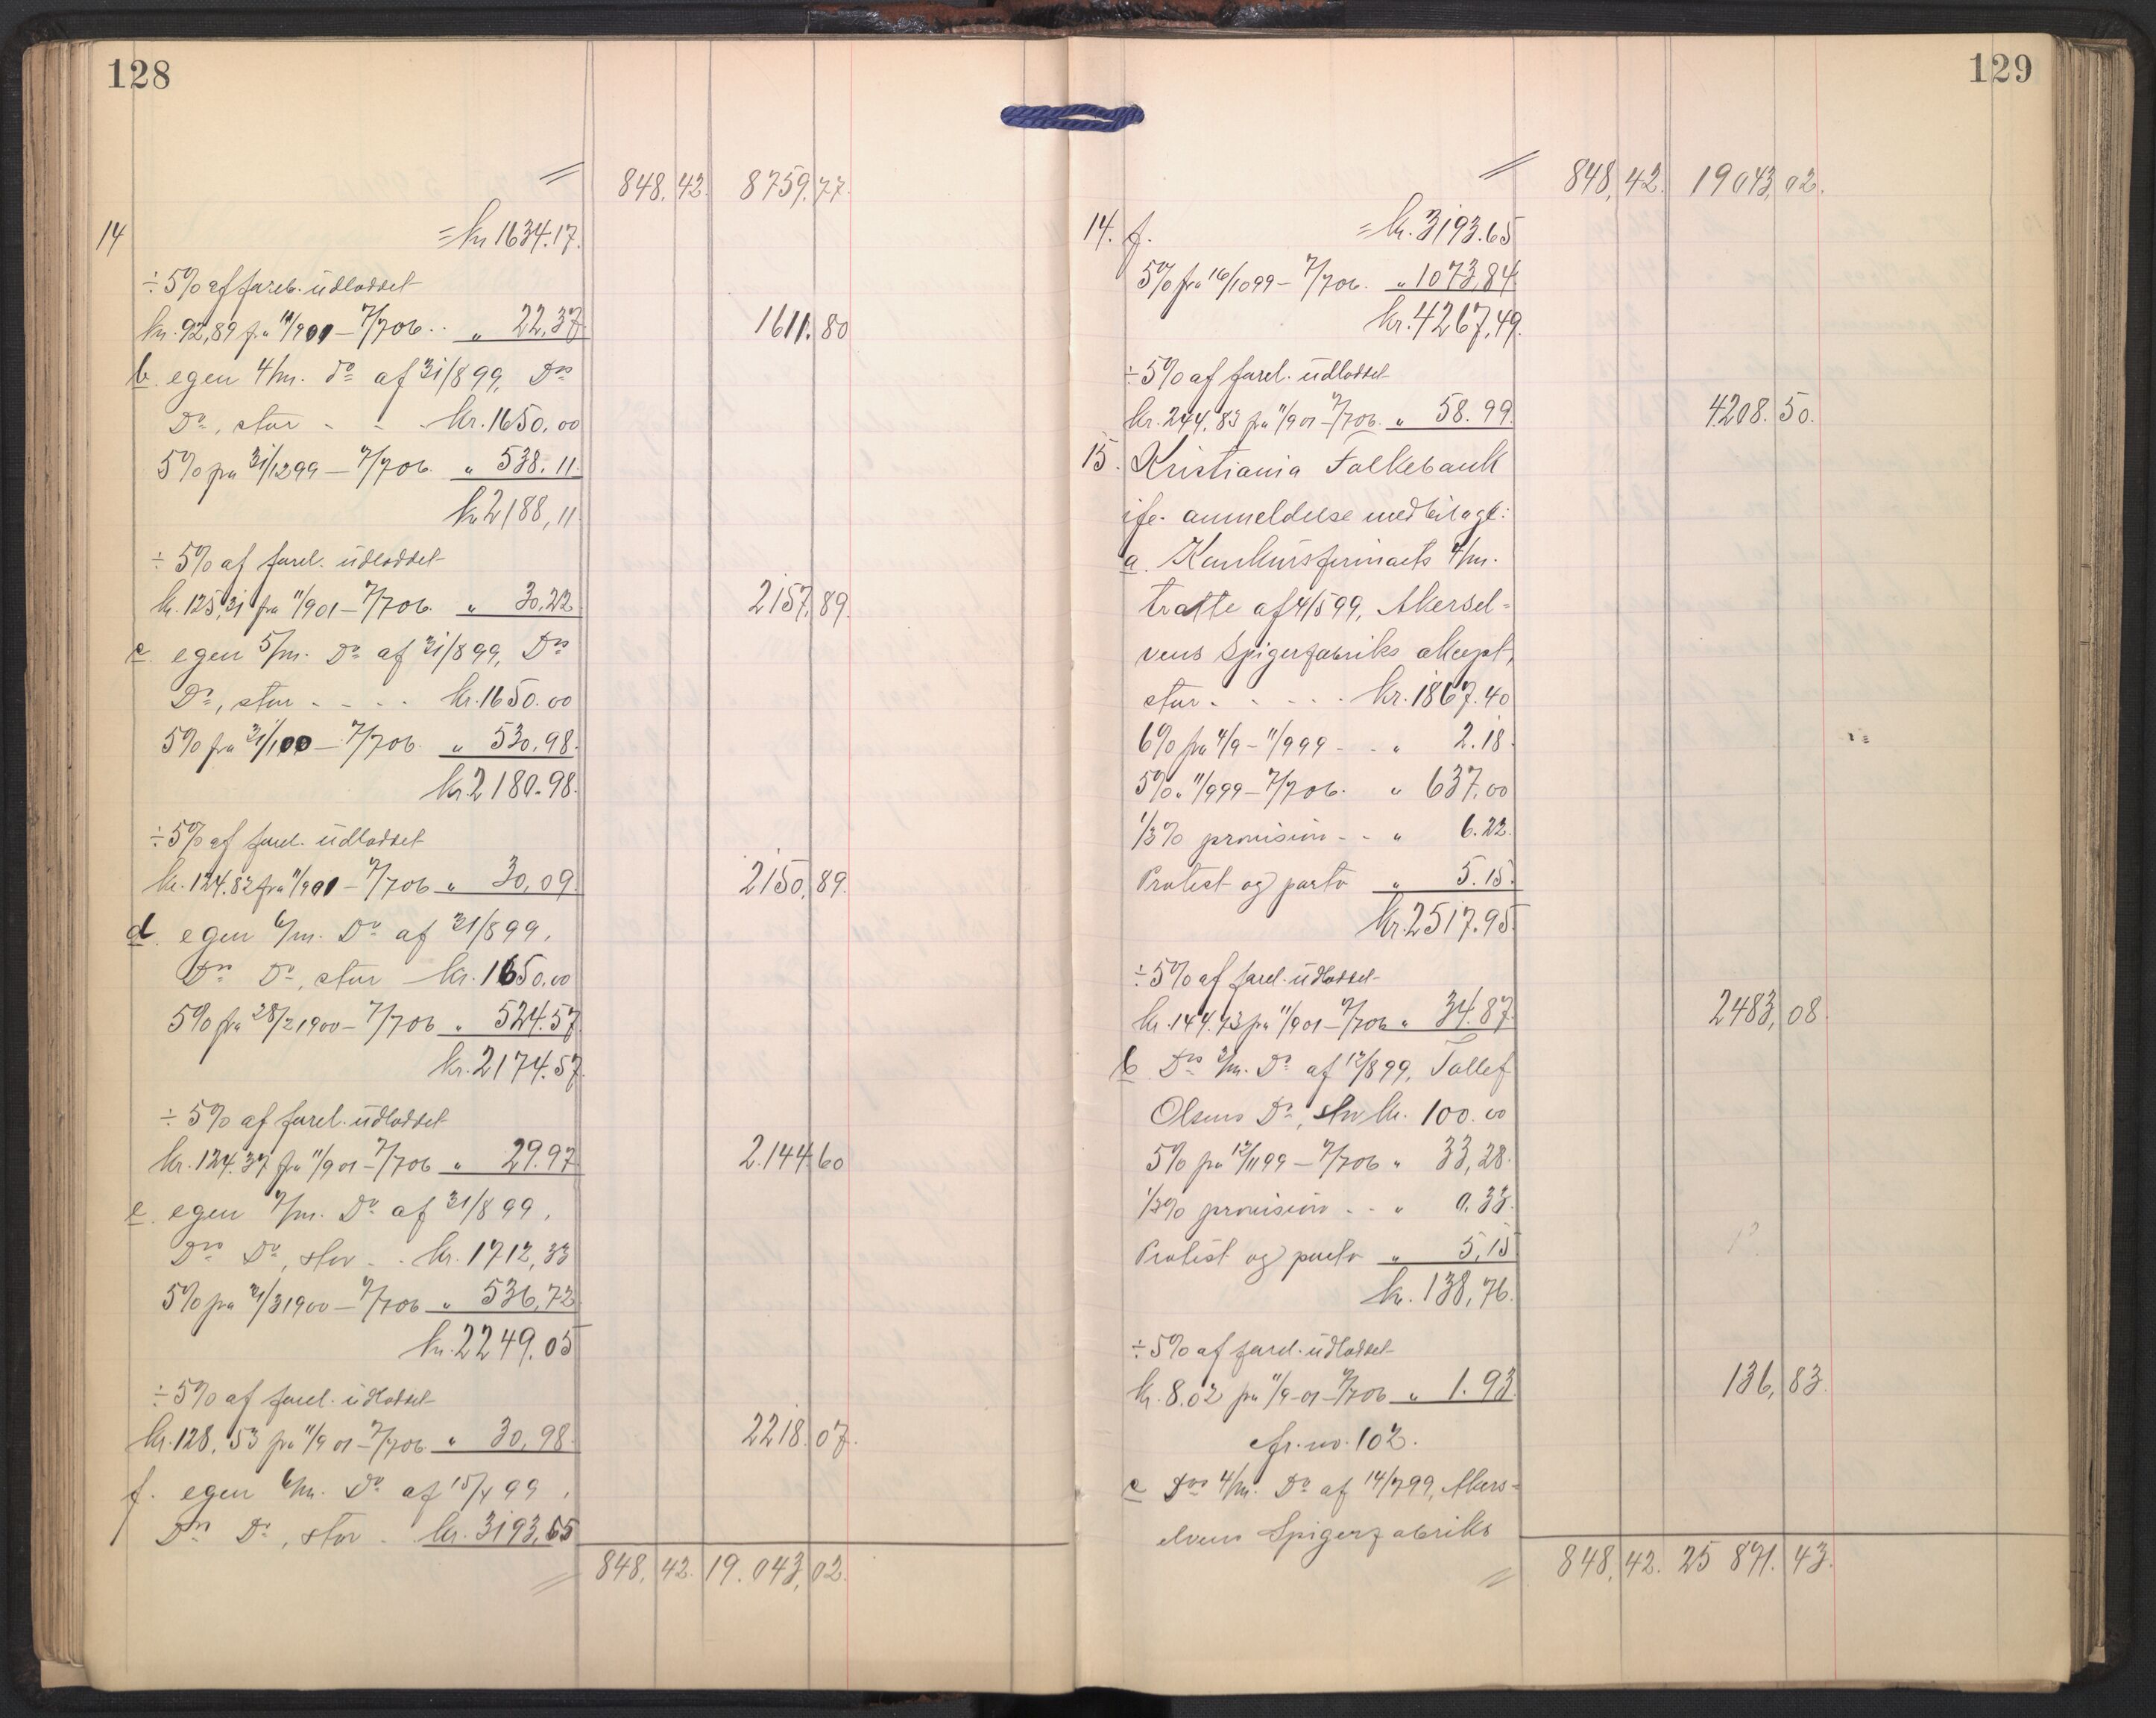 128
= 848,42. 8759,77.
14 = kr 1634.17.
÷ 5% af foreb. udloddet
kr. 92,89 fra 11/901 – 7/706 . . „ 22,37. 1611.80
b. egen 4/m. do af 31/899, Ds
Do, stor - - - kr. 1650,00
5% fra 31/1299 – 7/706. „ 538.11.
kr 2188,11.
÷ 5% af forel. udloddet
kr. 125,31 fra 11/901 – 7/706. „ 30,22. 2157,89.
c. egen 5/m. Do af 31/899, Ds
Do, stor - - - - kr. 1650.00
5% fra 31/100 – 7/706. „ 530,98.
kr. 2180.98.
÷ 5% af forel. udloddet
kr. 124.82 fra 11/901 – 7/706 „ 30,09. 2150,89.
d. egen 6/m. Do af 31/899,
Ds Do, stor - kr. 1650,00
5% fra 28/21900 – 7/706 „ 524.57.
kr. 2174.57.
÷ 5% af forel. udloddet
kr. 124.37 fra 11/901 – 7/706 „ 29.97. 2.144.60
e. egen 7/m. Do af 31/899,
Ds Do, stor - . kr. 1712,33
5% fra 31/31900 – 7/706 „ 536,72.
kr. 2249.05
÷ 5% af forel. udloddet
kr. 128,53 fra 11/901 – 7/706. „ 30,98. 2218.07.
f. egen 6/m. Do af 15/499,
Ds Do, stor - kr. 3193,65
= 848,42. 19.043,02.
129
= 848,42. 19043,02.
14. f. = kr. 3193.65
5% fra 16/1099 – 7/706. „ 1073,84.
kr. 4267,49.
÷ 5% af forel. udloddet
kr. 244,83 fra 11/901 – 7/706. „ 58.99. 4208.50.
15. Kristiania Folkebank
ifø. anmeldelse med bilage:
a. Konkursfirmaets 4/m.
tratte af 4/599, Akersel-
vens Spigerfabriks akcept,
stor - - - - - kr. 1867.40
6% fra 4/9 – 11/999 - . „ 2.18.
5% „ 11/999 – 7/706. „ 637.00
1/3% provision - - „ 6.22.
Protest og porto „ 5.15.
kr. 2517.95
÷ 5% af forel. udloddet
kr. 144.43 fra 11/901 – 7/706 „ 34.87. 2483,08.
b. Ds 3/m. Do af 12/899, Tollef
Olsens Do, stor kr. 100.00
5% fra 12/1199 – 7/706 „ 33,28.
1/3% provision - - „ 0.33.
Protest og porto „ 5,15
kr. 138,76.
÷ 5% af forel. udloddet
kr. 8.02 fra 11/9-01 – 7/706 „ 1.93. 136,83.
cfr. no. 102.
c. Ds 4/m. Do af 14/799, Akers-
elvens Spigerfabriks
= 848,42. 25 871.43.